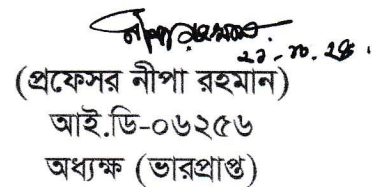 ২১-১০-২৪
(প্রফেসর নীপা রহমান)
আই.ডি-০৬২৫৬
অধ্যক্ষ (ভারপ্রাপ্ত)